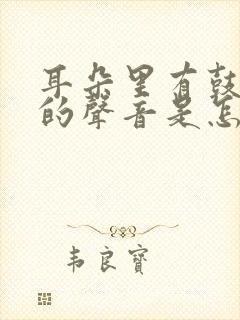 耳朵里有鼓
的聲音是怎
韦良寶